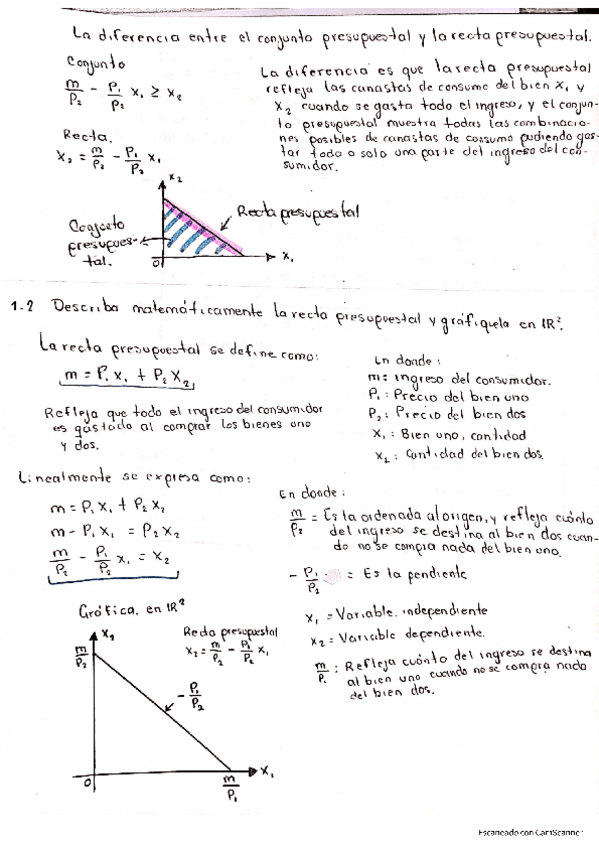 La diferencia entre el conjunto presupuestal y la recta presupuestal.
Conjunto
m/P₂ - P₁/P₂ x₁ ≥ x₂
Recta.
x₂ = m/P₂ - P₁/P₂ x₁
La diferencia es que la recta presupuestal
refleja las canastas de consumo del bien x₁ y
x₂ cuando se gasta todo el ingreso, y el conjun-
to presupuestal muestra todas las combinacio-
nes posibles de canastas de consumo pudiendo gas-
tar todo o solo una parte del ingreso del con-
sumidor.
x₂
Recta presupuestal
Conjunto
presupues-
tal.
0
x₁
1.2 Describa matemáticamente la recta presupuestal y gráfiquela en IR².
La recta presupuestal se define como:
m = P₁ x₁ + P₂ x₂
Refleja que todo el ingreso del consumidor
es gastado al comprar los bienes uno
y dos.
En donde:
m: ingreso del consumidor.
P₁: Precio del bien uno
P₂: Precio del bien dos
x₁: Bien uno, cantidad
x₂: Cantidad del bien dos.
Linealmente se expresa como:
m = P₁ x₁ + P₂ x₂
m - P₁ x₁ = P₂ x₂
m/P₂ - P₁/P₂ x₁ = x₂
En donde:
m/P₂ = Es la ordenada al origen, y refleja cuánto
del ingreso se destina al bien dos cuan-
do no se compra nada del bien uno.
- P₁/P₂ = Es la pendiente
x₁ = Variable independiente
x₂ = Variable dependiente.
m/P₁: Refleja cuánto del ingreso se destina
al bien uno cuando no se compra nada
del bien dos.
Gráfica en IR²
x₂
Recta presupuestal
x₂ = m/P₂ - P₁/P₂ x₁
m/P₂
- P₁/P₂
0
m/P₁
x₁
Escaneado con CamScanner